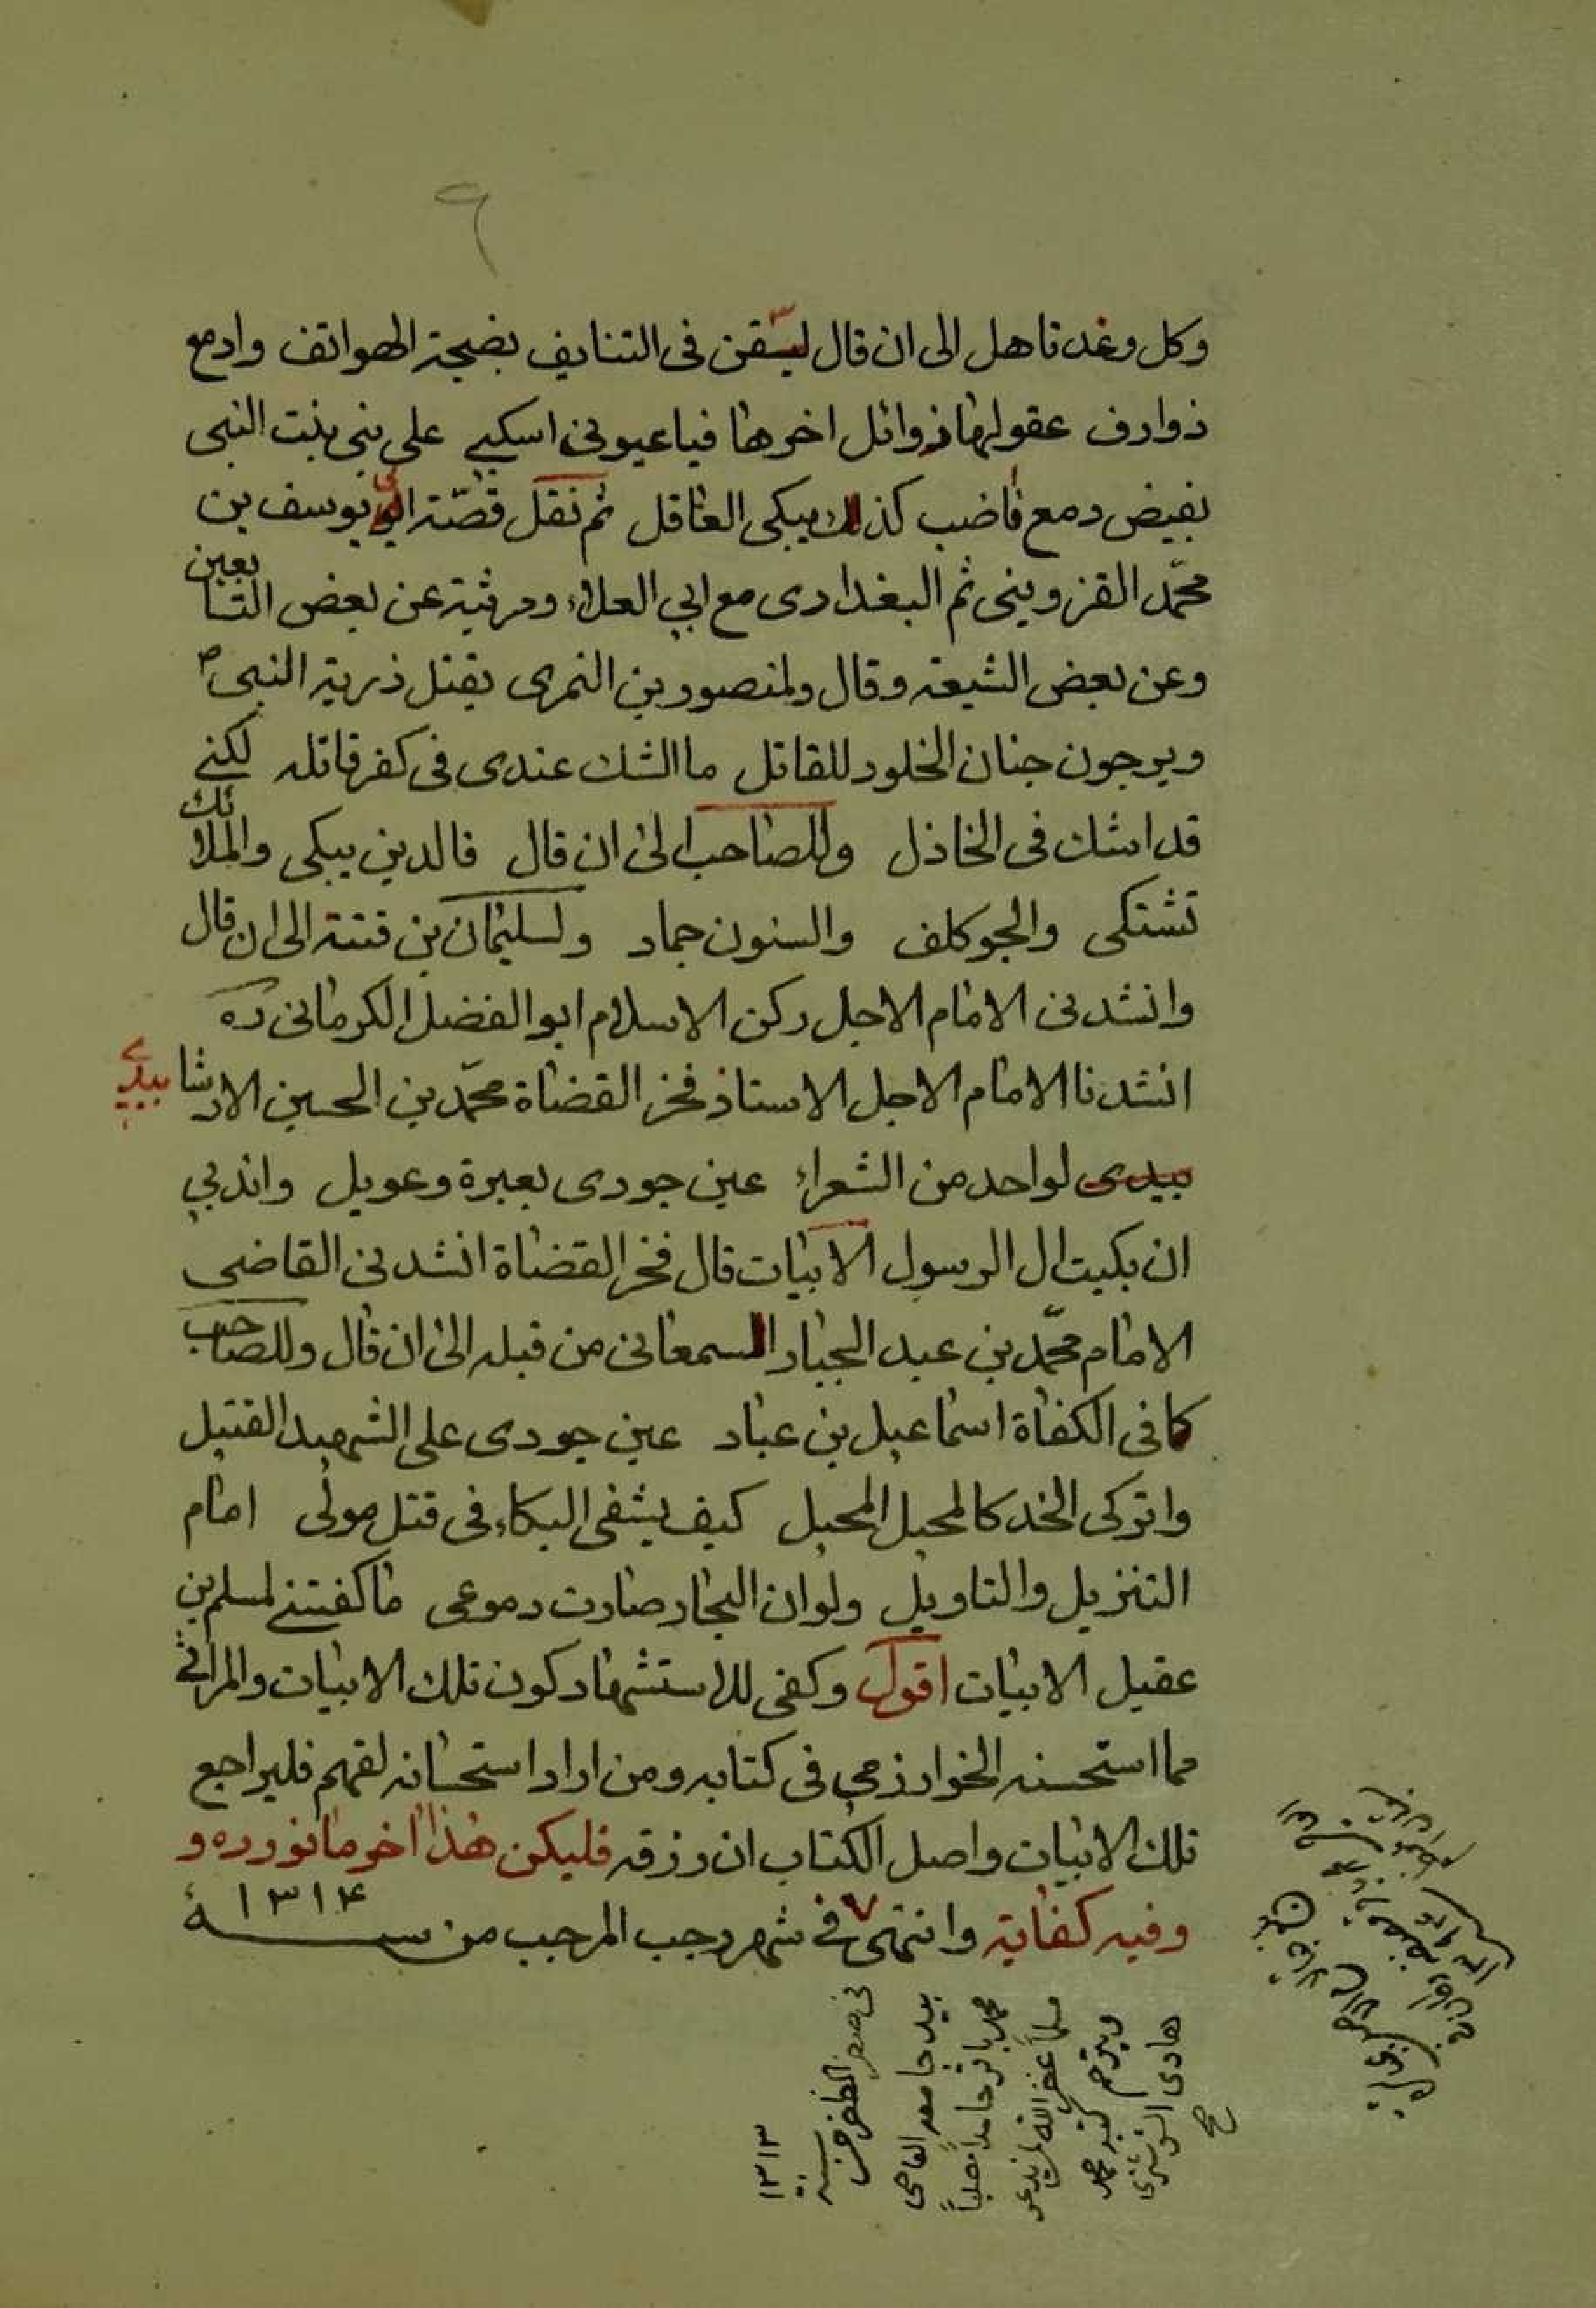 ٩
وكل وغد تاهل الى ان قال ليسقن فى التنايف بضجة الهواتف وادمع
ذوارف عقولها ذوائل اخرها فيا عيونى اسكبي على بنى بنت النبى
بفيض دمع فاضب كذاك يبكى العاقل ثم نقل قصّة ابى يوسف بن
محمّد القزوينى ثم البغدادى مع ابي العلاء ومرثية عن بعض التابعين
وعن بعض الشيعة وقال ولمنصور بن النمرى يقتل ذرية النبى ص
ويرجون جنان الخلود للقاتل ما الشك عندى فى كفر قاتله لكنى
قد اشك فى الخاذل وللصاحب الى ان قال فالدين يبكى والملائك
تشتكى والجو كلف والسنون جماد ولسليمان بن قتتة الى ان قال
وانشدنى الامام الاجل ركن الاسلام ابو الفضل الكرمانى ره
انشدنا الامام الاجل الاستاذ فخر القضاة محمّد بن الحسين الارشا بيدى
بيدى لواحد من الشعراء عين جودى بعبرة وعويل واندبي
ان بكيت ال الرسول الابيات قال فخر القضاة انشدنى القاضى
الامام محمّد بن عبد الجبار السمعانى من قبله الى ان قال وللصاحب
كافى الكفاة اسماعيل بن عباد عين جودى على الشهيد القتيل
واتركى الخد كالمحيل المحيل كيف يشفى البكاء فى قتل مولى امام
التنزيل والتاويل ولو ان البحار صارت دموعى ما كفتنى لمسلم بن
عقيل الابيات اقول وكفى للاستشهاد كون تلك الابيات والمراثى
مما استحسنه الخوارزمى فى كتابه ومن اراد استحسانه لفهم فليراجع
تلك الابيات واصل الكتاب ان رزقه فليكن هذا اخر ما نورده و
وفيه كفاية وانتهى ٧ فى شهر رجب المرجب من سنة ١٣١۴
هادى الشوشترى
محمد باقر حامدا مصليا
مسلما غفر الله
بيد جامعه العاصى
فى صفر المظفر من سنة
١٣١٣